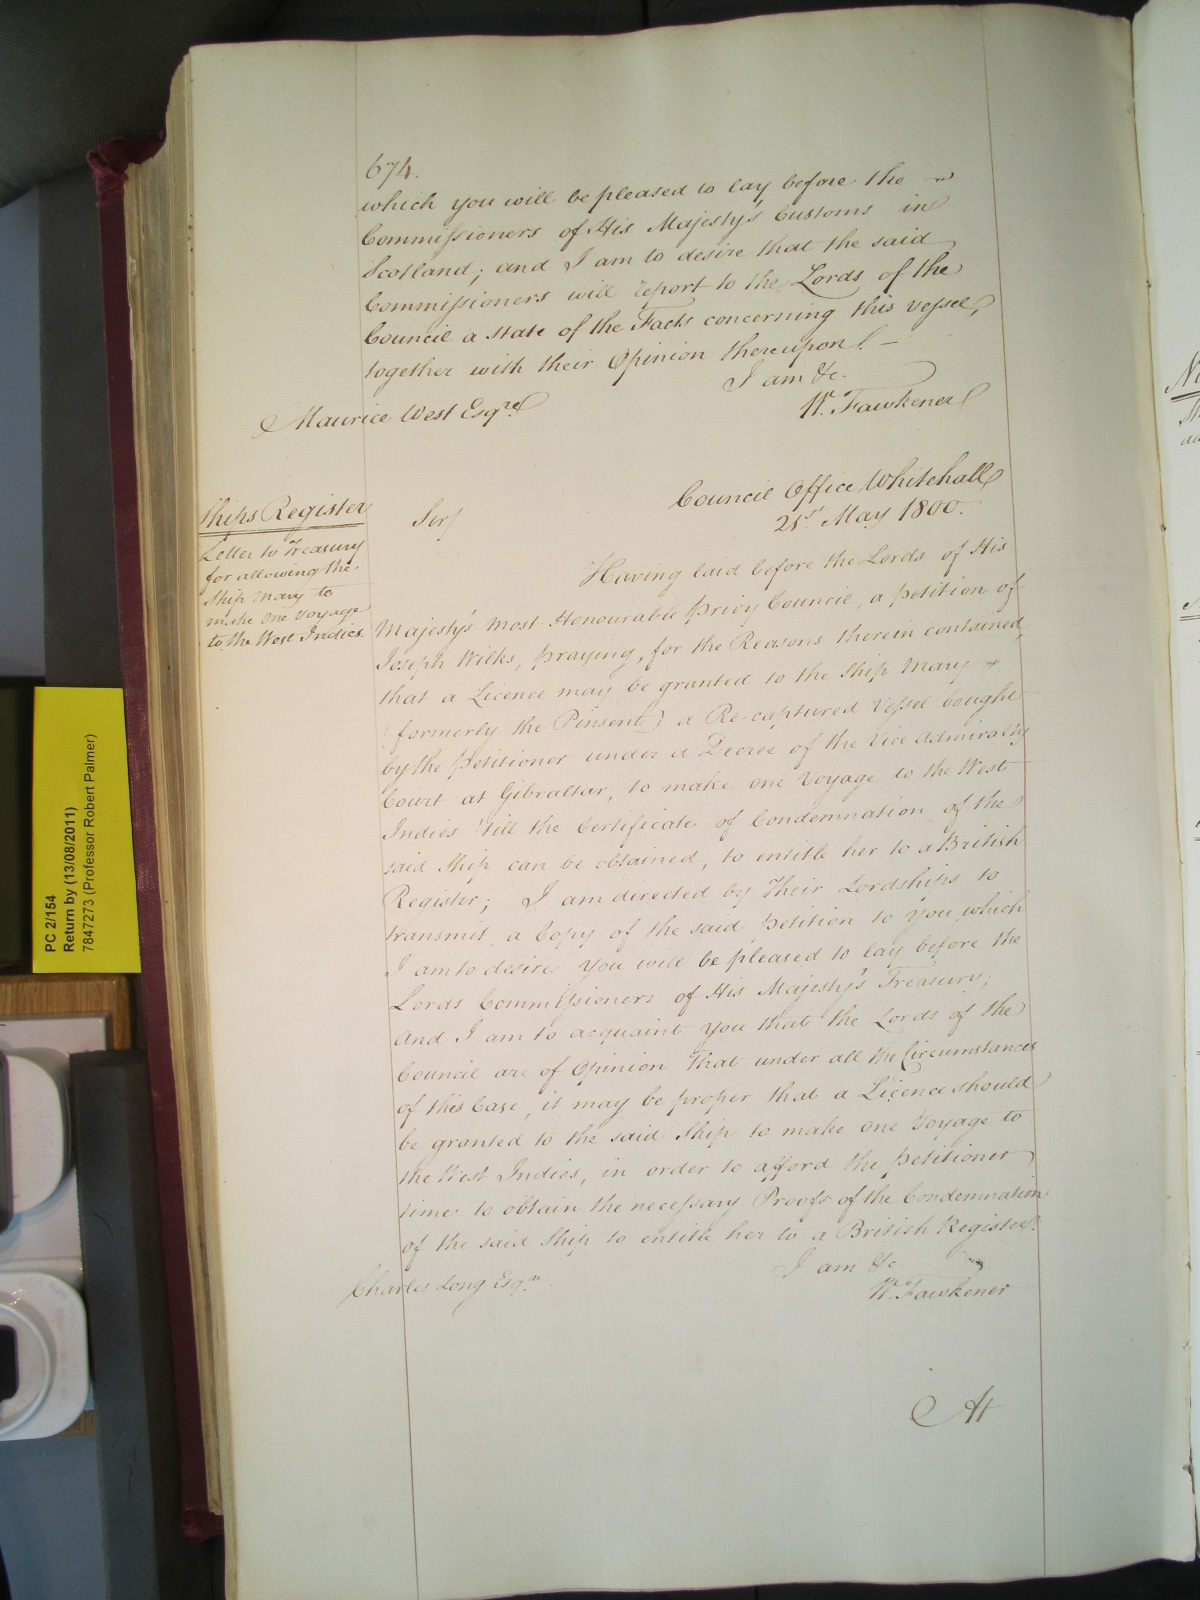 674.
which you will be pleased to lay before the
Commissioners of His Majesty's Customs in
Scotland; and I am to desire that the said
Commissioners will report to the Lords of the
Council a state of the Facts concerning this vessel,
together with their Opinion thereupon. —
I am &c.
W. Fawkener
Maurice West Esqre.
Council Office Whitehall
21st May 1800.
Ships Register
Letter to Treasury
for allowing the
Ship Mary to
make one Voyage
to the West Indies.
Sir,
Having laid before the Lords of His
Majesty's most Honourable Privy Council, a petition of
Joseph Wilks, praying, for the Reasons therein contained,
that a Licence may be granted to the Ship Mary
(formerly the Pinsent) a Re-captured Vessel bought
by the Petitioner under a Decree of the Vice Admiralty
Court at Gibraltar, to make one Voyage to the West
Indies 'till the Certificate of Condemnation of the
said Ship can be obtained, to entitle her to a British
Register; I am directed by Their Lordships to
transmit a Copy of the said Petition to you, which
I am to desire you will be pleased to lay before the
Lords Commissioners of His Majesty's Treasury;
and I am to acquaint you that the Lords of the
Council are of Opinion that under all the Circumstances
of this Case, it may be proper that a Licence should
be granted to the said Ship to make one Voyage to
the West Indies, in order to afford the Petitioner
time to obtain the necessary Proofs of the Condemnation
of the said Ship to entitle her to a British Register.
I am &c
W. Fawkener
Charles Long Esqre.
At
PC 2/154
Return by (13/08/2011)
7847273 (Professor Robert Palmer)